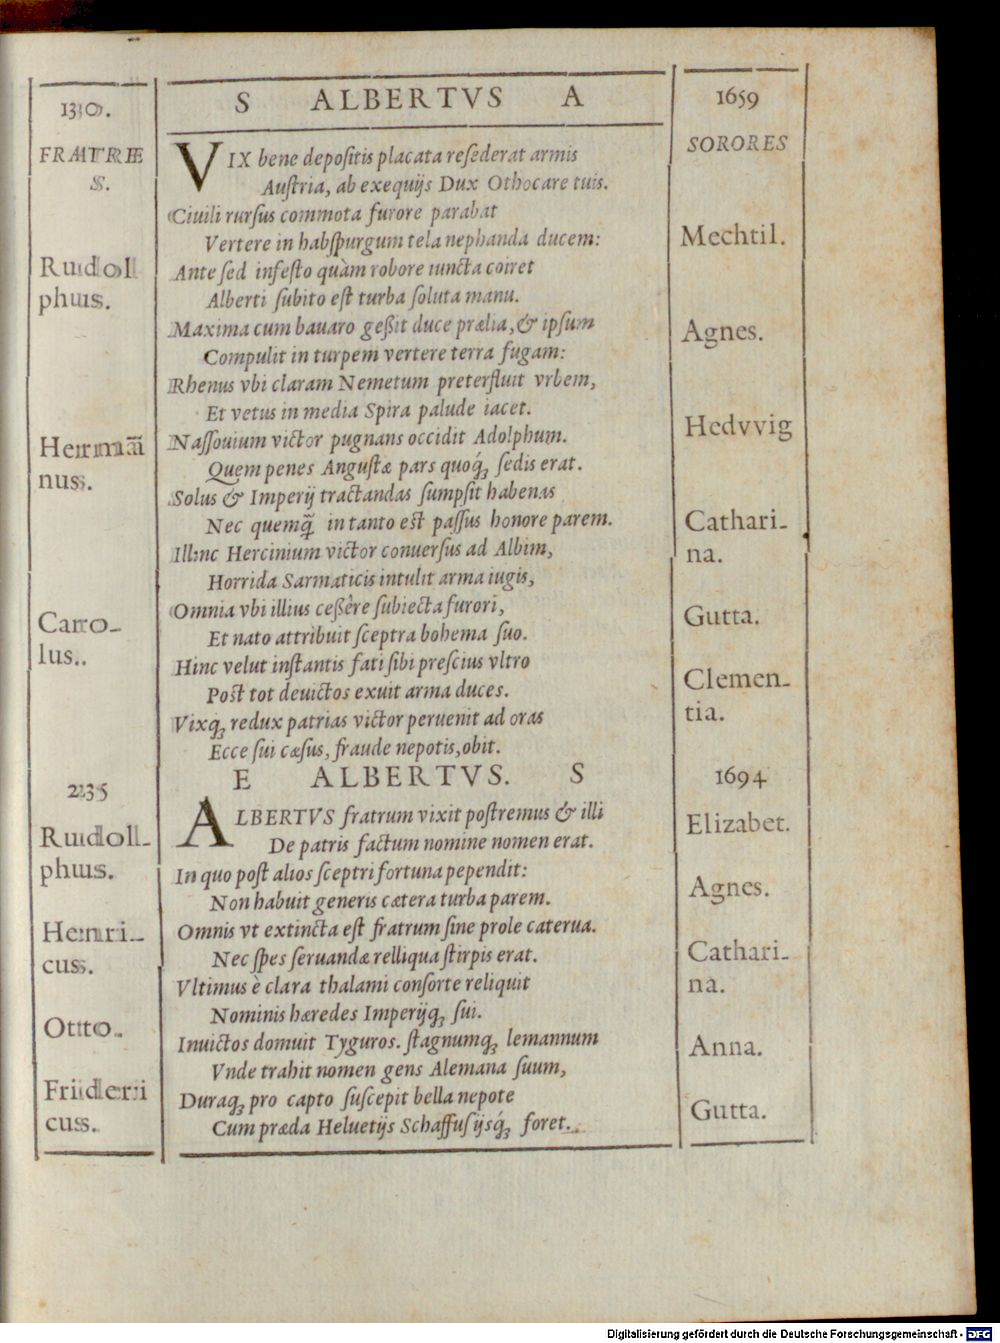 S ALBERTVS A
VIX bene depoſitis placata reſederat armis
Auſtria, ab exequijs Dux Othocare tuis.
Ciuili rurſus commota furore parabat
Vertere in habſpurgum tela nephanda ducem:
Ante ſed infeſto quàm robore iuncta coiret
Alberti ſubito eſt turba ſoluta manu.
Maxima cum bauaro geßit duce prælia, & ipſum
Compulit in turpem vertere terra fugam:
Rhenus vbi claram Nemetum preterfluit vrbem,
Et vetus in media Spira palude iacet.
Naſſouium victor pugnans occidit Adolphum.
Quem penes Anguſtæ pars quoq́ꝫ ſedis erat.
Solus & Imperij tractandas ſumpſit habenas
Nec quemq̃ in tanto eſt paſſus honore parem.
Illinc Hercinium victor conuerſus ad Albim,
Horrida Sarmaticis intulit arma iugis,
Omnia vbi illius ceßêre ſubiecta furori,
Et nato attribuit ſceptra bohema ſuo.
Hinc velut inſtantis fati ſibi preſcius vltro
Poſt tot deuictos exuit arma duces.
Vixqꝫ redux patrias victor peruenit ad oras
Ecce ſui cæſus, fraude nepotis, obit.
E ALBERTVS. S
ALBERTVS fratrum vixit poſtremus & illi
De patris factum nomine nomen erat.
In quo poſt alios ſceptri fortuna pependit:
Non habuit generis cætera turba parem.
Omnis vt extincta eſt fratrum ſine prole caterua.
Nec ſpes ſeruandæ relliqua ſtirpis erat.
Vltimus è clara thalami conſorte reliquit
Nominis hæredes Imperijqꝫ ſui.
Inuictos domuit Tyguros. ſtagnumqꝫ lemannum
Vnde trahit nomen gens Alemana ſuum,
Duraqꝫ pro capto ſuſcepit bella nepote
Cum præda Heluetijs Schaffuſijsq́ꝫ foret.
FRATRE
S.
Rudoll
phus.
Herman̄
nus.
Carro-
lus.
Rudoll-
phus.
Henri-
cus.
Otto.
Frideri
cus.
1659
SORORES
Mechtil.
Agnes.
Hedvvig
Cathari-
na.
Gutta.
Clemen-
tia.
1694
Elizabet.
Agnes.
Cathari-
na.
Anna.
Gutta.
Digitalisierung gefördert durch die Deutsche Forschungsgemeinschaft - DFG